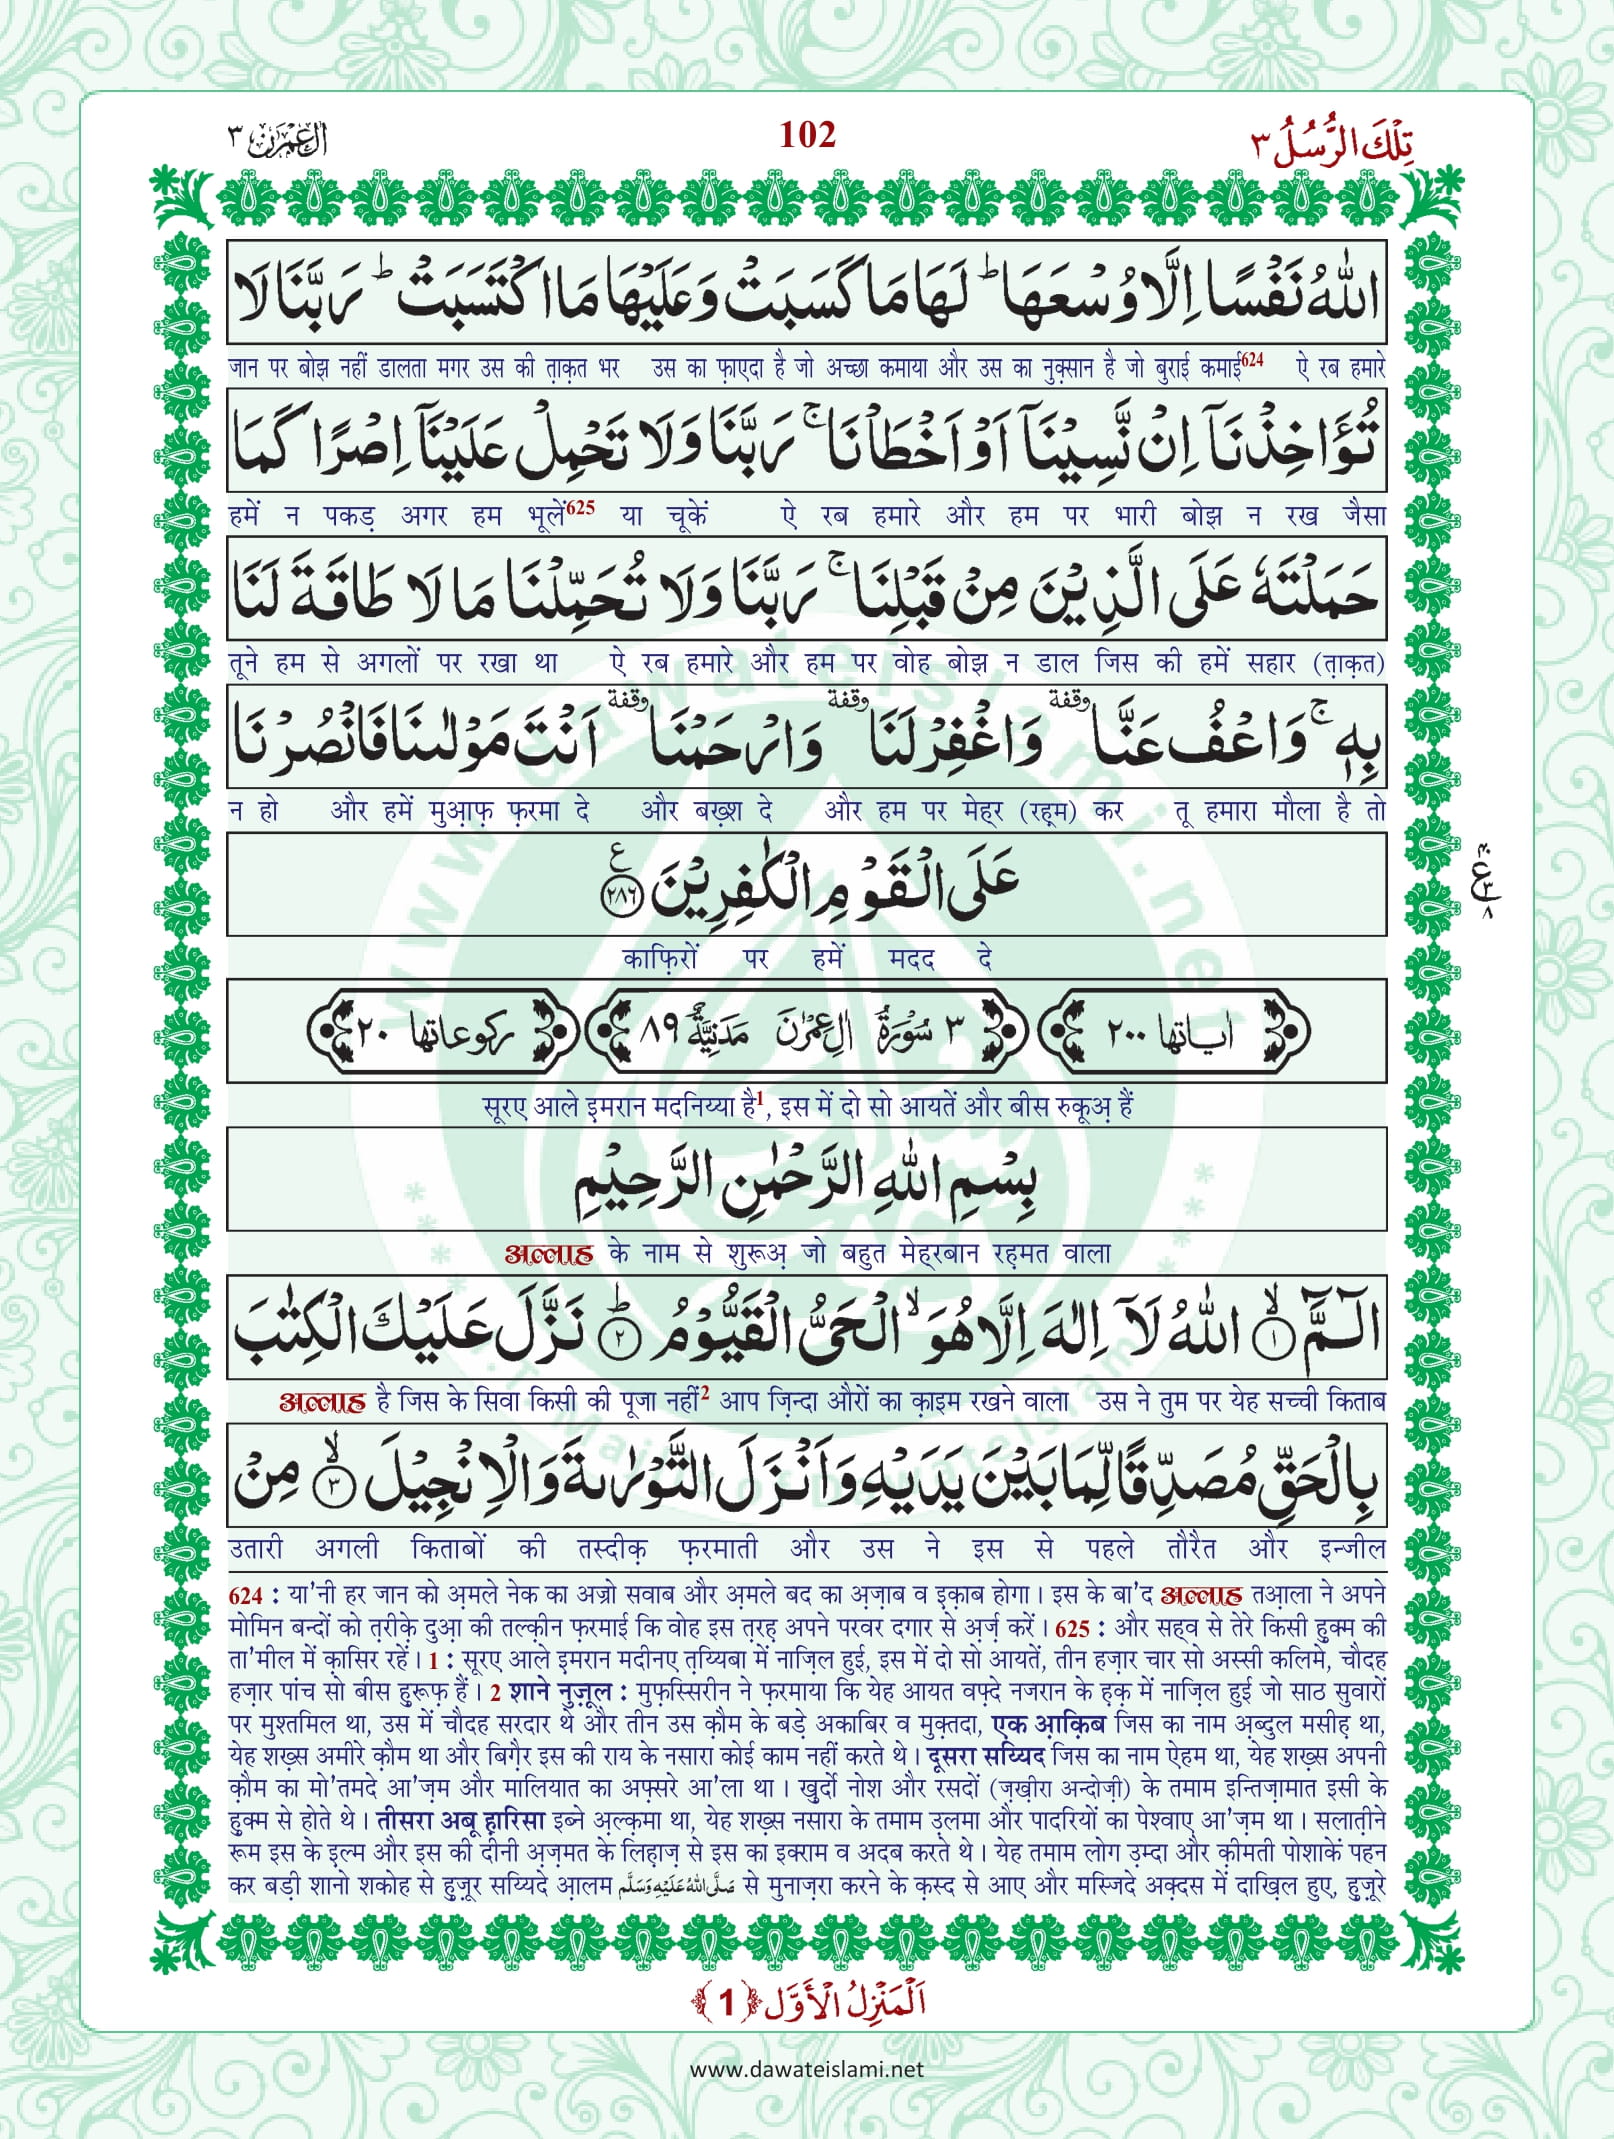 اٰل عِمْرٰن ٣
102
تِلْكَ الرُّسُلُ ٣
اللّٰهُ نَفْسًا اِلَّا وُسْعَهَا ؕ لَهَا مَا كَسَبَتْ وَعَلَیْهَا مَا اكْتَسَبَتْ ؕ رَبَّنَا لَا
जान पर बोझ नहीं डालता मगर उस की त़ाक़त भर उस का फ़ाएदा है जो अच्छा कमाया और उस का नुक़्सान है जो बुराई कमाई624 ऐ रब हमारे
تُؤَاخِذْنَاۤ اِنْ نَّسِیْنَاۤ اَوْ اَخْطَاْنَا ۚ رَبَّنَا وَلَا تَحْمِلْ عَلَیْنَاۤ اِصْرًا كَمَا
हमें न पकड़ अगर हम भूलें625 या चूकें ऐ रब हमारे और हम पर भारी बोझ न रख जैसा
حَمَلْتَهٗ عَلَی الَّذِیْنَ مِنْ قَبْلِنَا ۚ رَبَّنَا وَلَا تُحَمِّلْنَا مَا لَا طَاقَةَ لَنَا
तूने हम से अगलों पर रखा था ऐ रब हमारे और हम पर वोह बोझ न डाल जिस की हमें सहार (त़ाक़त)
بِهٖ ۚ وَاعْفُ عَنَّا وقفة وَاغْفِرْ لَنَا وقفة وَارْحَمْنَا وقفة اَنْتَ مَوْلٰىنَا فَانْصُرْنَا
न हो और हमें मुआ़फ़ फ़रमा दे और बख़्श दे और हम पर मेह्‌र (रह़्‌म) कर तू हमारा मौला है तो
عَلَی الْقَوْمِ الْكٰفِرِیْنَ ﴿٢٨٦﴾ ع
काफ़िरों पर हमें मदद दे
اٰیاتها ٢٠٠ ٣ سُوْرَةُ اٰلِ عِمْرٰنَ مَدَنِیَّةٌ ٨٩ ركوعاتها ٢٠
सूरए आले इ़मरान मदनिय्या है1, इस में दो सो आयतें और बीस रुकूअ़ हैं
بِسْمِ اللّٰهِ الرَّحْمٰنِ الرَّحِیْمِ
अल्लाह के नाम से शुरूअ़ जो बहुत मेह्‌रबान रह़मत वाला
الٓمَّٓ ۙ﴿١﴾ اللّٰهُ لَاۤ اِلٰهَ اِلَّا هُوَ ۙ الْحَیُّ الْقَیُّوْمُ ؕ﴿٢﴾ نَزَّلَ عَلَیْكَ الْكِتٰبَ
अल्लाह है जिस के सिवा किसी की पूजा नहीं2 आप ज़िन्दा औरों का क़ाइम रखने वाला उस ने तुम पर येह सच्ची किताब
بِالْحَقِّ مُصَدِّقًا لِّمَا بَیْنَ یَدَیْهِ وَاَنْزَلَ التَّوْرٰىةَ وَالْاِنْجِیْلَ ۙ﴿٣﴾ مِنْ
उतारी अगली किताबों की तस्दीक़ फ़रमाती और उस ने इस से पहले तौरैत और इन्जील
624 : या'नी हर जान को अ़मले नेक का अज्रो सवाब और अ़मले बद का अ़ज़ाब व इ़क़ाब होगा। इस के बा'द अल्लाह तआ़ला ने अपने
मोमिन बन्दों को त़रीक़े दुआ़ की तल्क़ीन फ़रमाई कि वोह इस त़रह़ अपने परवर दगार से अ़र्ज़ करें। 625 : और सह्‌व से तेरे किसी हुक्म की
ता'मील में क़ासिर रहें। 1 : सूरए आले इ़मरान मदीनए त़य्यिबा में नाज़िल हुई, इस में दो सो आयतें, तीन हज़ार चार सो अस्सी कलिमे, चौदह
हज़ार पांच सो बीस ह़ुरूफ़ हैं। 2 शाने नुज़ूल : मुफ़स्सिरीन ने फ़रमाया कि येह आयत वफ़्दे नजरान के ह़क़ में नाज़िल हुई जो साठ सुवारों
पर मुश्तमिल था, उस में चौदह सरदार थे और तीन उस क़ौम के बड़े अकाबिर व मुक़्तदा, एक आ़क़िब जिस का नाम अ़ब्दुल मसीह़ था,
येह शख़्स अमीरे क़ौम था और बिग़ैर इस की राय के नसारा कोई काम नहीं करते थे। दूसरा सय्यिद जिस का नाम ऐहम था, येह शख़्स अपनी
क़ौम का मो'तमदे आ'ज़म और मालियात का अफ़्सरे आ'ला था। ख़ुर्दो नोश और रसदों (ज़ख़ीरा अन्दोज़ी) के तमाम इन्तिज़ामात इसी के
हुक्म से होते थे। तीसरा अबू ह़ारिसा इब्ने अ़ल्क़मा था, येह शख़्स नसारा के तमाम उ़लमा और पादरियों का पेश्वाए आ'ज़म था। सलात़ीने
रूम इस के इ़ल्म और इस की दीनी अ़ज़मत के लिह़ाज़ से इस का इक्राम व अदब करते थे। येह तमाम लोग उ़म्दा और क़ीमती पोशाकें पहन
कर बड़ी शानो शकोह से ह़ुज़ूर सय्यिदे आ़लम صَلَّى اللّٰهُ عَلَيْهِ وَسَلَّم से मुनाज़रा करने के क़स्द से आए और मस्जिदे अक़्दस में दाख़िल हुए, ह़ुज़ूरे
اَلْمَنْزِلُ الْاَوَّل ﴿1﴾
www.dawateislami.net